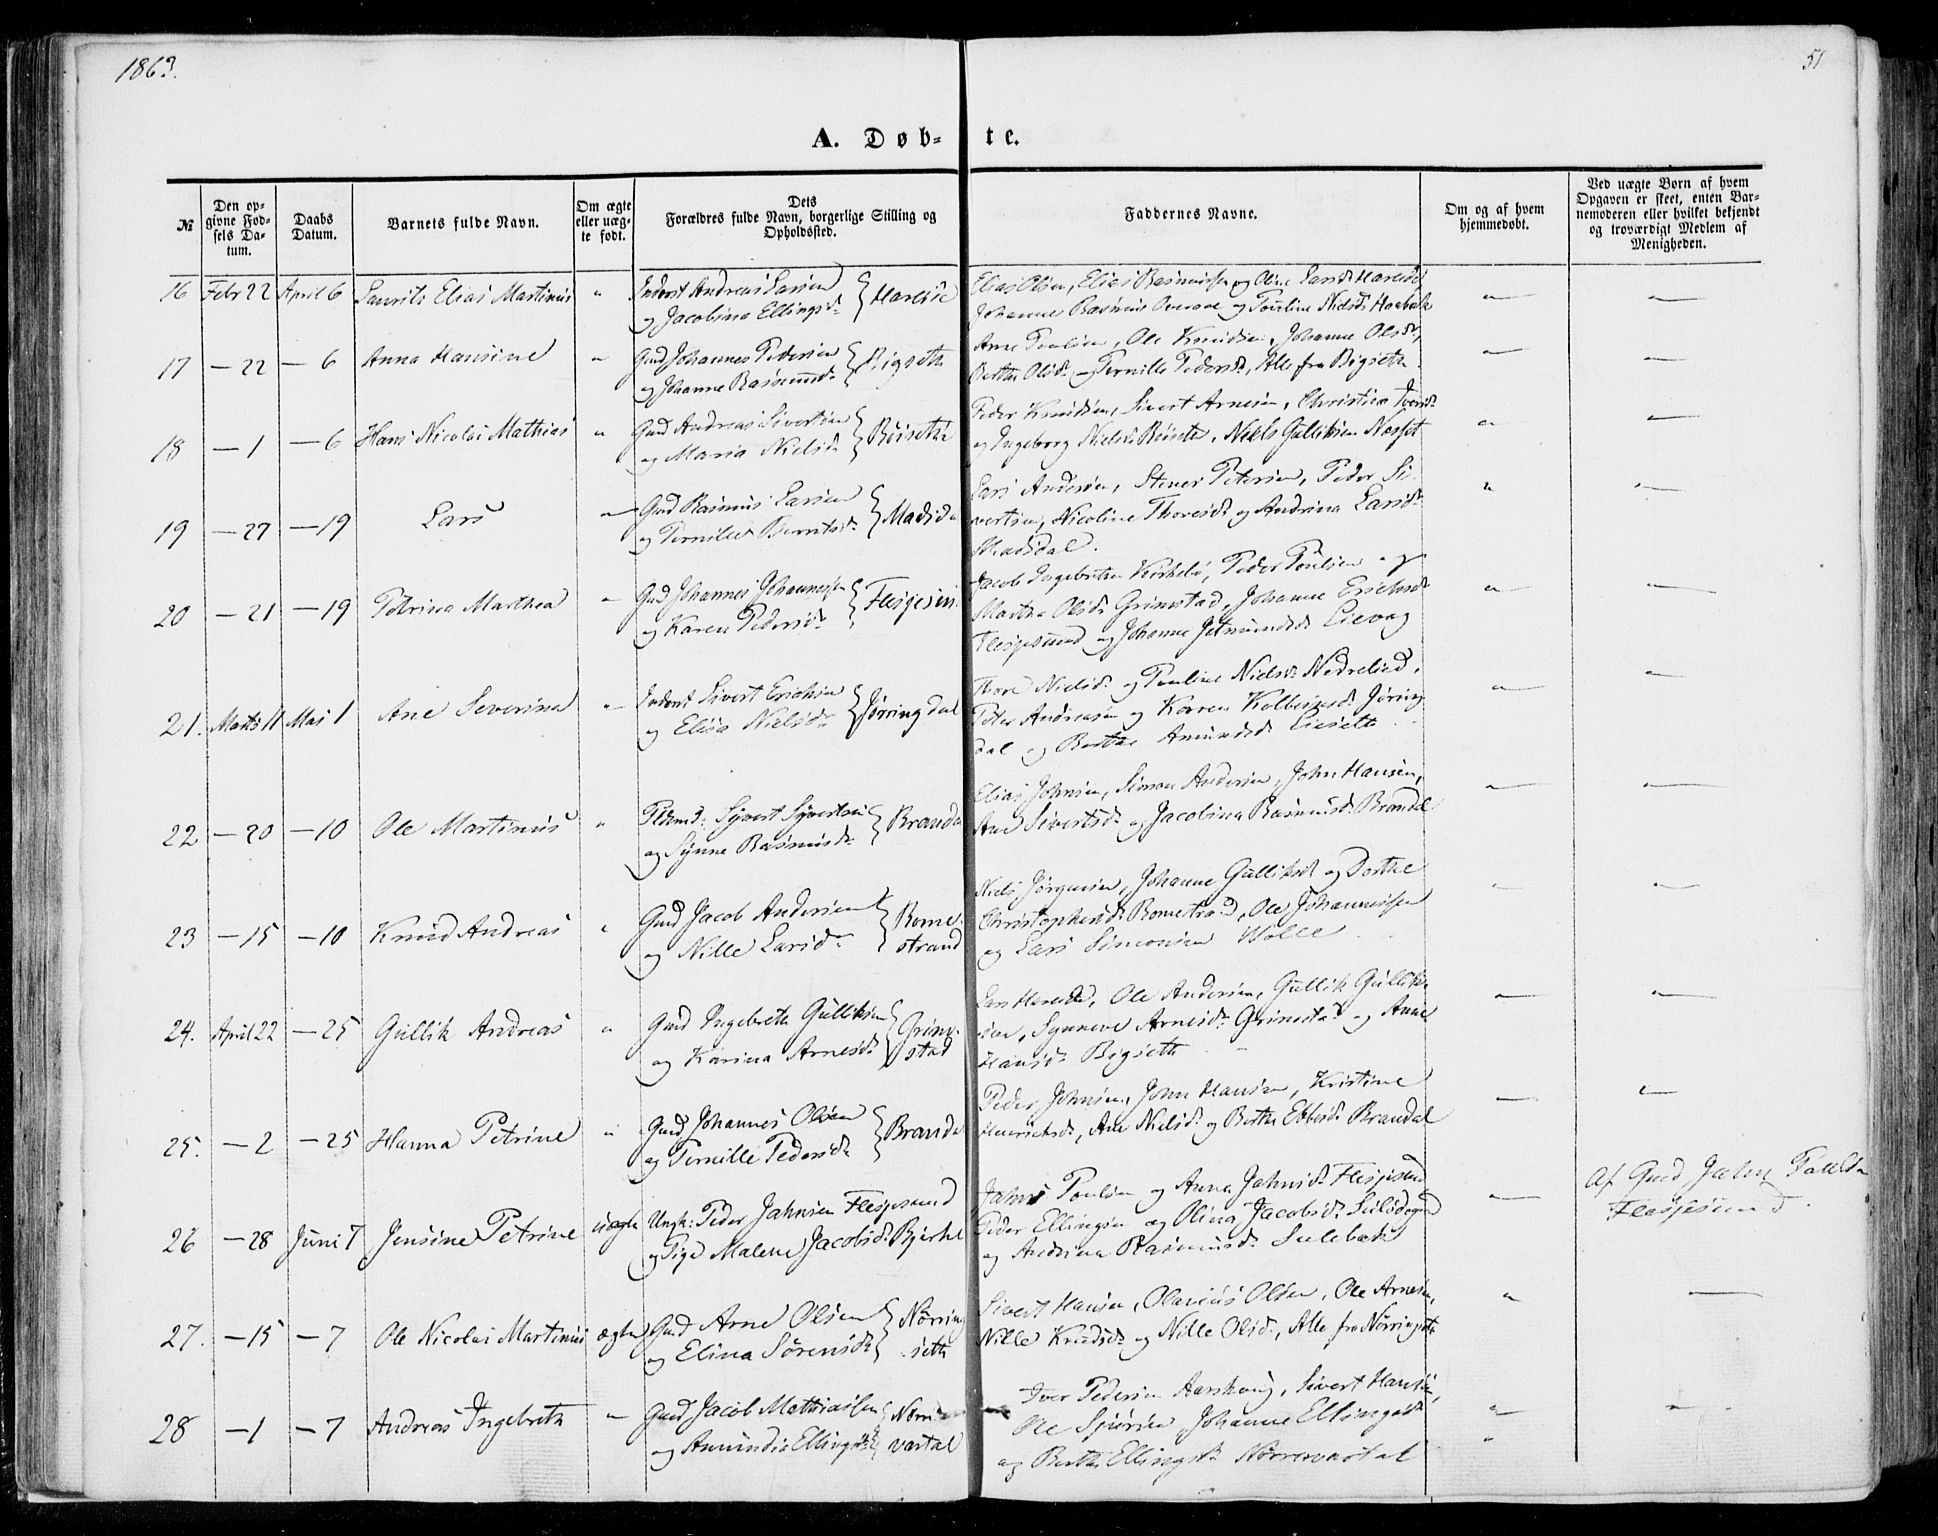 1863.
51
A. Døb-
te.
№
Den op-
givne Fød-
sels Da-
tum.
Daabs
Datum.
Barnets fulde Navn.
Om ægte
eller uæg-
te født.
Dets
Forældres fulde Navn, borgerlige Stilling og
Opholdssted.
Faddernes Navne.
Om og af hvem
hjemmedøbt.
Ved uægte Børn af hvem
Opgaven er skeet, enten Bar-
nemoderen eller hvilket bekjendt
og troværdigt Medlem af
Menigheden.
16 Febr 22 April 6 Laurits Elias Martinus " Inderst Andreas Larsen
og Jacobina Ellingsd. Hareide
Elias Olsen, Elias Rasmussen og Oline Larsd. Hareide
Johannes Rasmus Overaae og Pouline Nielsd.
17 — 22 — 6 Anna Hansine " Gmd Johannes Pedersen
og Johanne Rasmusd. Bigseth
Arne Poulsen, Ole Knudsen, Johanne Olsd.,
Berthe Olsd. og Pernille Pedersd., Alle fra Bigseth.
18 — 1 — 6 Hans Nicolai Mathias " Gmd Andreas Sivertsen
og Maria Nielsd. Röiseth
Peder Knudsen, Sivert Arnesen, Christine Iversd.
og Ingeborg Nielsd. Röiseth, Niels Gulliksen Nesset
19 — 27 — 19 Lars " Gmd Rasmus Larsen
og Pernille Berntsd. Madsdal
Lars Andersen, Stener Petersen, Peder Si-
vertsen, Nicoline Thoresd. og Andrina Larsd.
Madsdal.
20 — 21 — 19 Petrina Marthea " Gmd Johannes Johannessen
og Karen Pedersd. Flesjesun
Jacob Ingebretsen Kirkelö, Peder Poulsen og
Martha Olsd. Grimstad, Johanne Erichsd.
Flesjesund og Johanne Jetmundsd. Lievog
21. Marts 11 Mai 1 Ane Severina " Inderst Sivert Erichsen
og Elisa Nielsd. Jörringdal
Thore Nielsd. og Pouline Nielsd. Nedrelied,
Peter Andreasen og Karen Kolbeinsd. Jörring-
dal og Berthe Amundsd. Lieseth
22 — 20 — 10 Ole Martinus " Pldsmd: Syvert Syvertsen
og Synne Rasmusd. Branda
Elias Johnsen, Simon Andersen, John Hansen,
Ane Sivertsd. og Jacobina Rasmusd. Brandal
23 — 15 — 10 Knud Andreas " Gmd Jacob Andersen
og Nille Larsd. Rome-
strand
Niels Jörgensen, Johanne Gulliksd. og Dorthe
Christophersd. Romestrand, Ole Johannessen
og Lars Simonsen Wolle
24. April 22 — 25 Gullik Andreas " Gmd Ingebreth Gulliksen
og Karina Arnesd. Grim-
stad
Lars Hareide, Ole Andersen, Gullik Gullik-
sen, Synneve Arnesd. Grimstad og Anne
Hansd. Bigseth
25. — 2 — 25 Hanna Petrine " Gmd Johannes Olsen
og Pernille Pedersd. Branda
Peder Johnsen, John Hansen, Kristine
Henriksd., Ane Nielsd. og Berthe Ebbesd. Brandal
26 — 28 Juni 7 Jensine Petrine uægte Ungk: Peder Jahnsen Flesjesund
og Pige Malene Jacobsd. Bjerke
Jahn Poulsen og Anna Jahnsd. Flesjesund
Peder Ellingsen og Olina Jacobsd.
og Andrina Rasmusd. Sulebak
Af Gmd Jahn
Flesjesund.
27. — 15 — 7 Ole Nicolai Martinus ægte Gmd Arne Olsen
og Elina Sörensd. Nörring
seth
Sivert Hansen, Olarius Olsen, Ole Arnesen,
Nille Knudsd. og Nille Olsd., Alle fra Nörringseth
28 — 1 — 7 Andreas Ingebreth " Gmd Jacob Mathiassen
og Amundine Ellingsd. Nörre
vartal
Iver Pedersen Aarskoug, Sivert Hansen,
Ole Sjursen, Johanne Ellingsd.
og Berthe Ellingsd. Nörrevartal